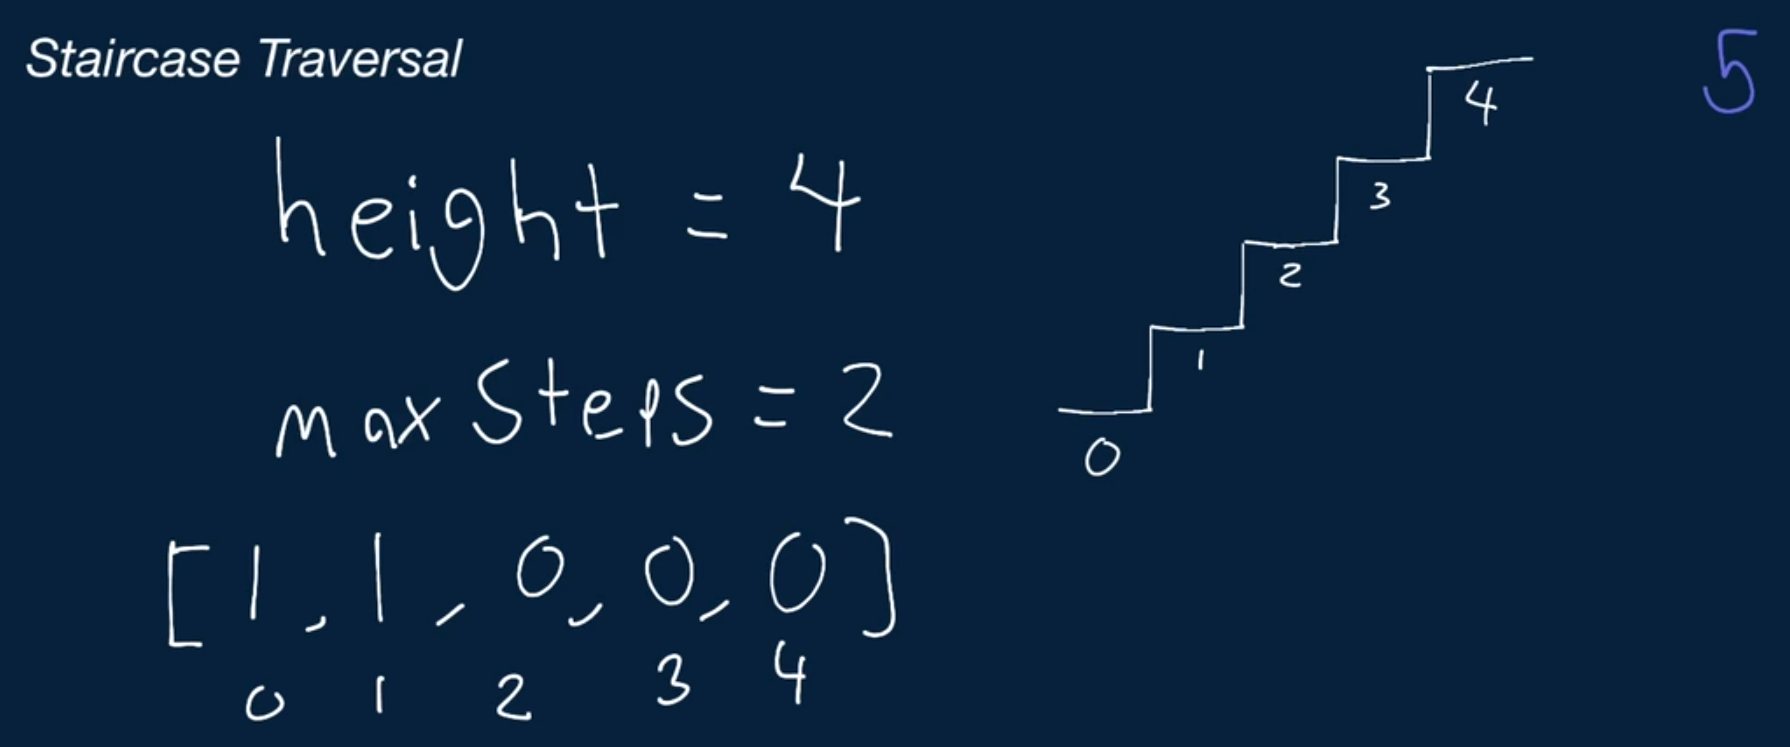 Staircase Traversal
5
height = 4
max Steps = 2
4
3
2
1
0
[1, 1, 0, 0, 0]
0 1 2 3 4